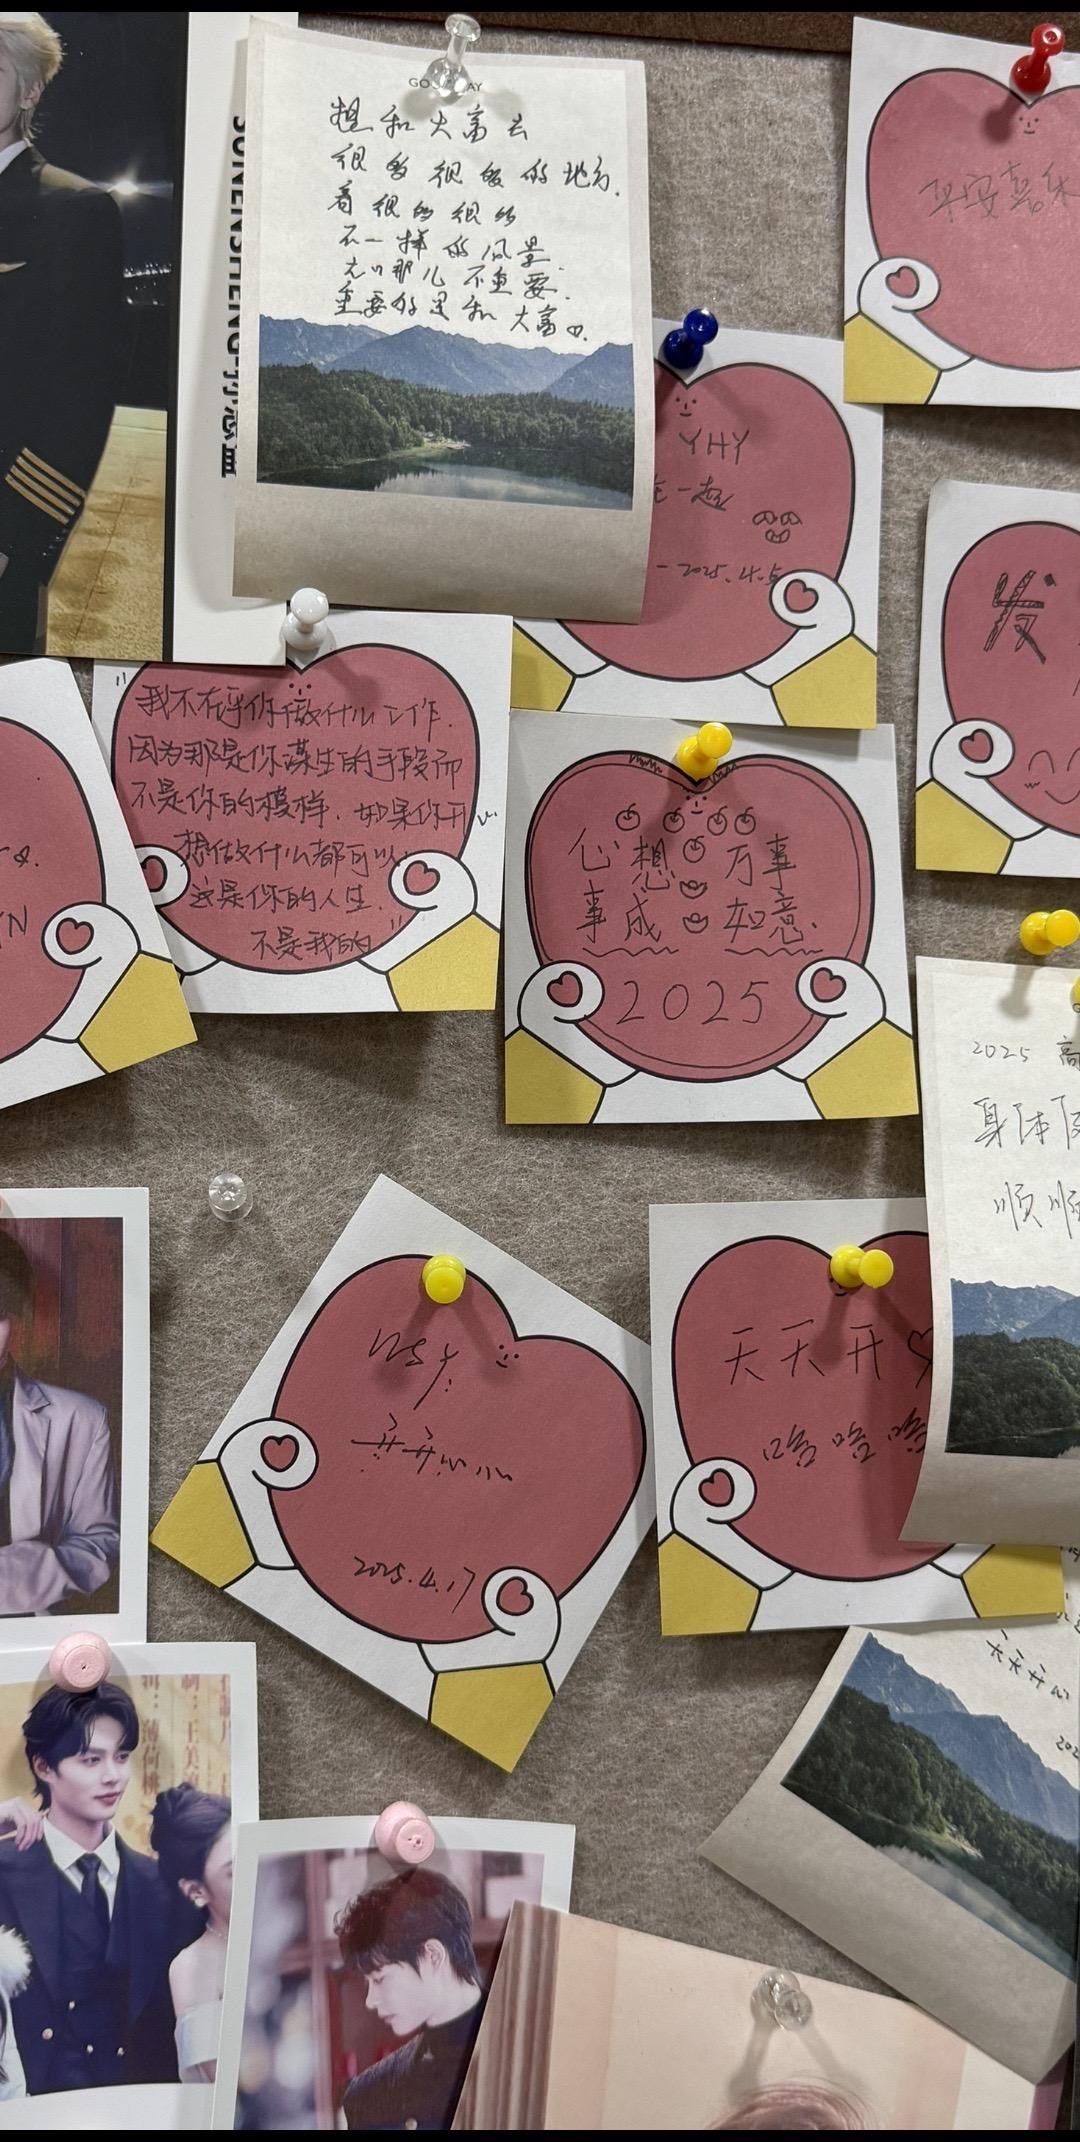 想和大富去
很多很多的地方.
看很多很多
不一样的风景.
去哪儿不重要.
重要的是和大富
平安喜乐
YHY
在一起
-2025.4.5
发
"我不在乎你做什么工作.
因为那是你谋生的手段而
不是你的模样. 如果你开心
想做什么都可以
这是你的人生.
不是我的"
心想 万事
事成 如意.
2025
YN
2025
身体
顺顺
天天开♡
哈哈哈
开开心心
2025.4.17
天天开心